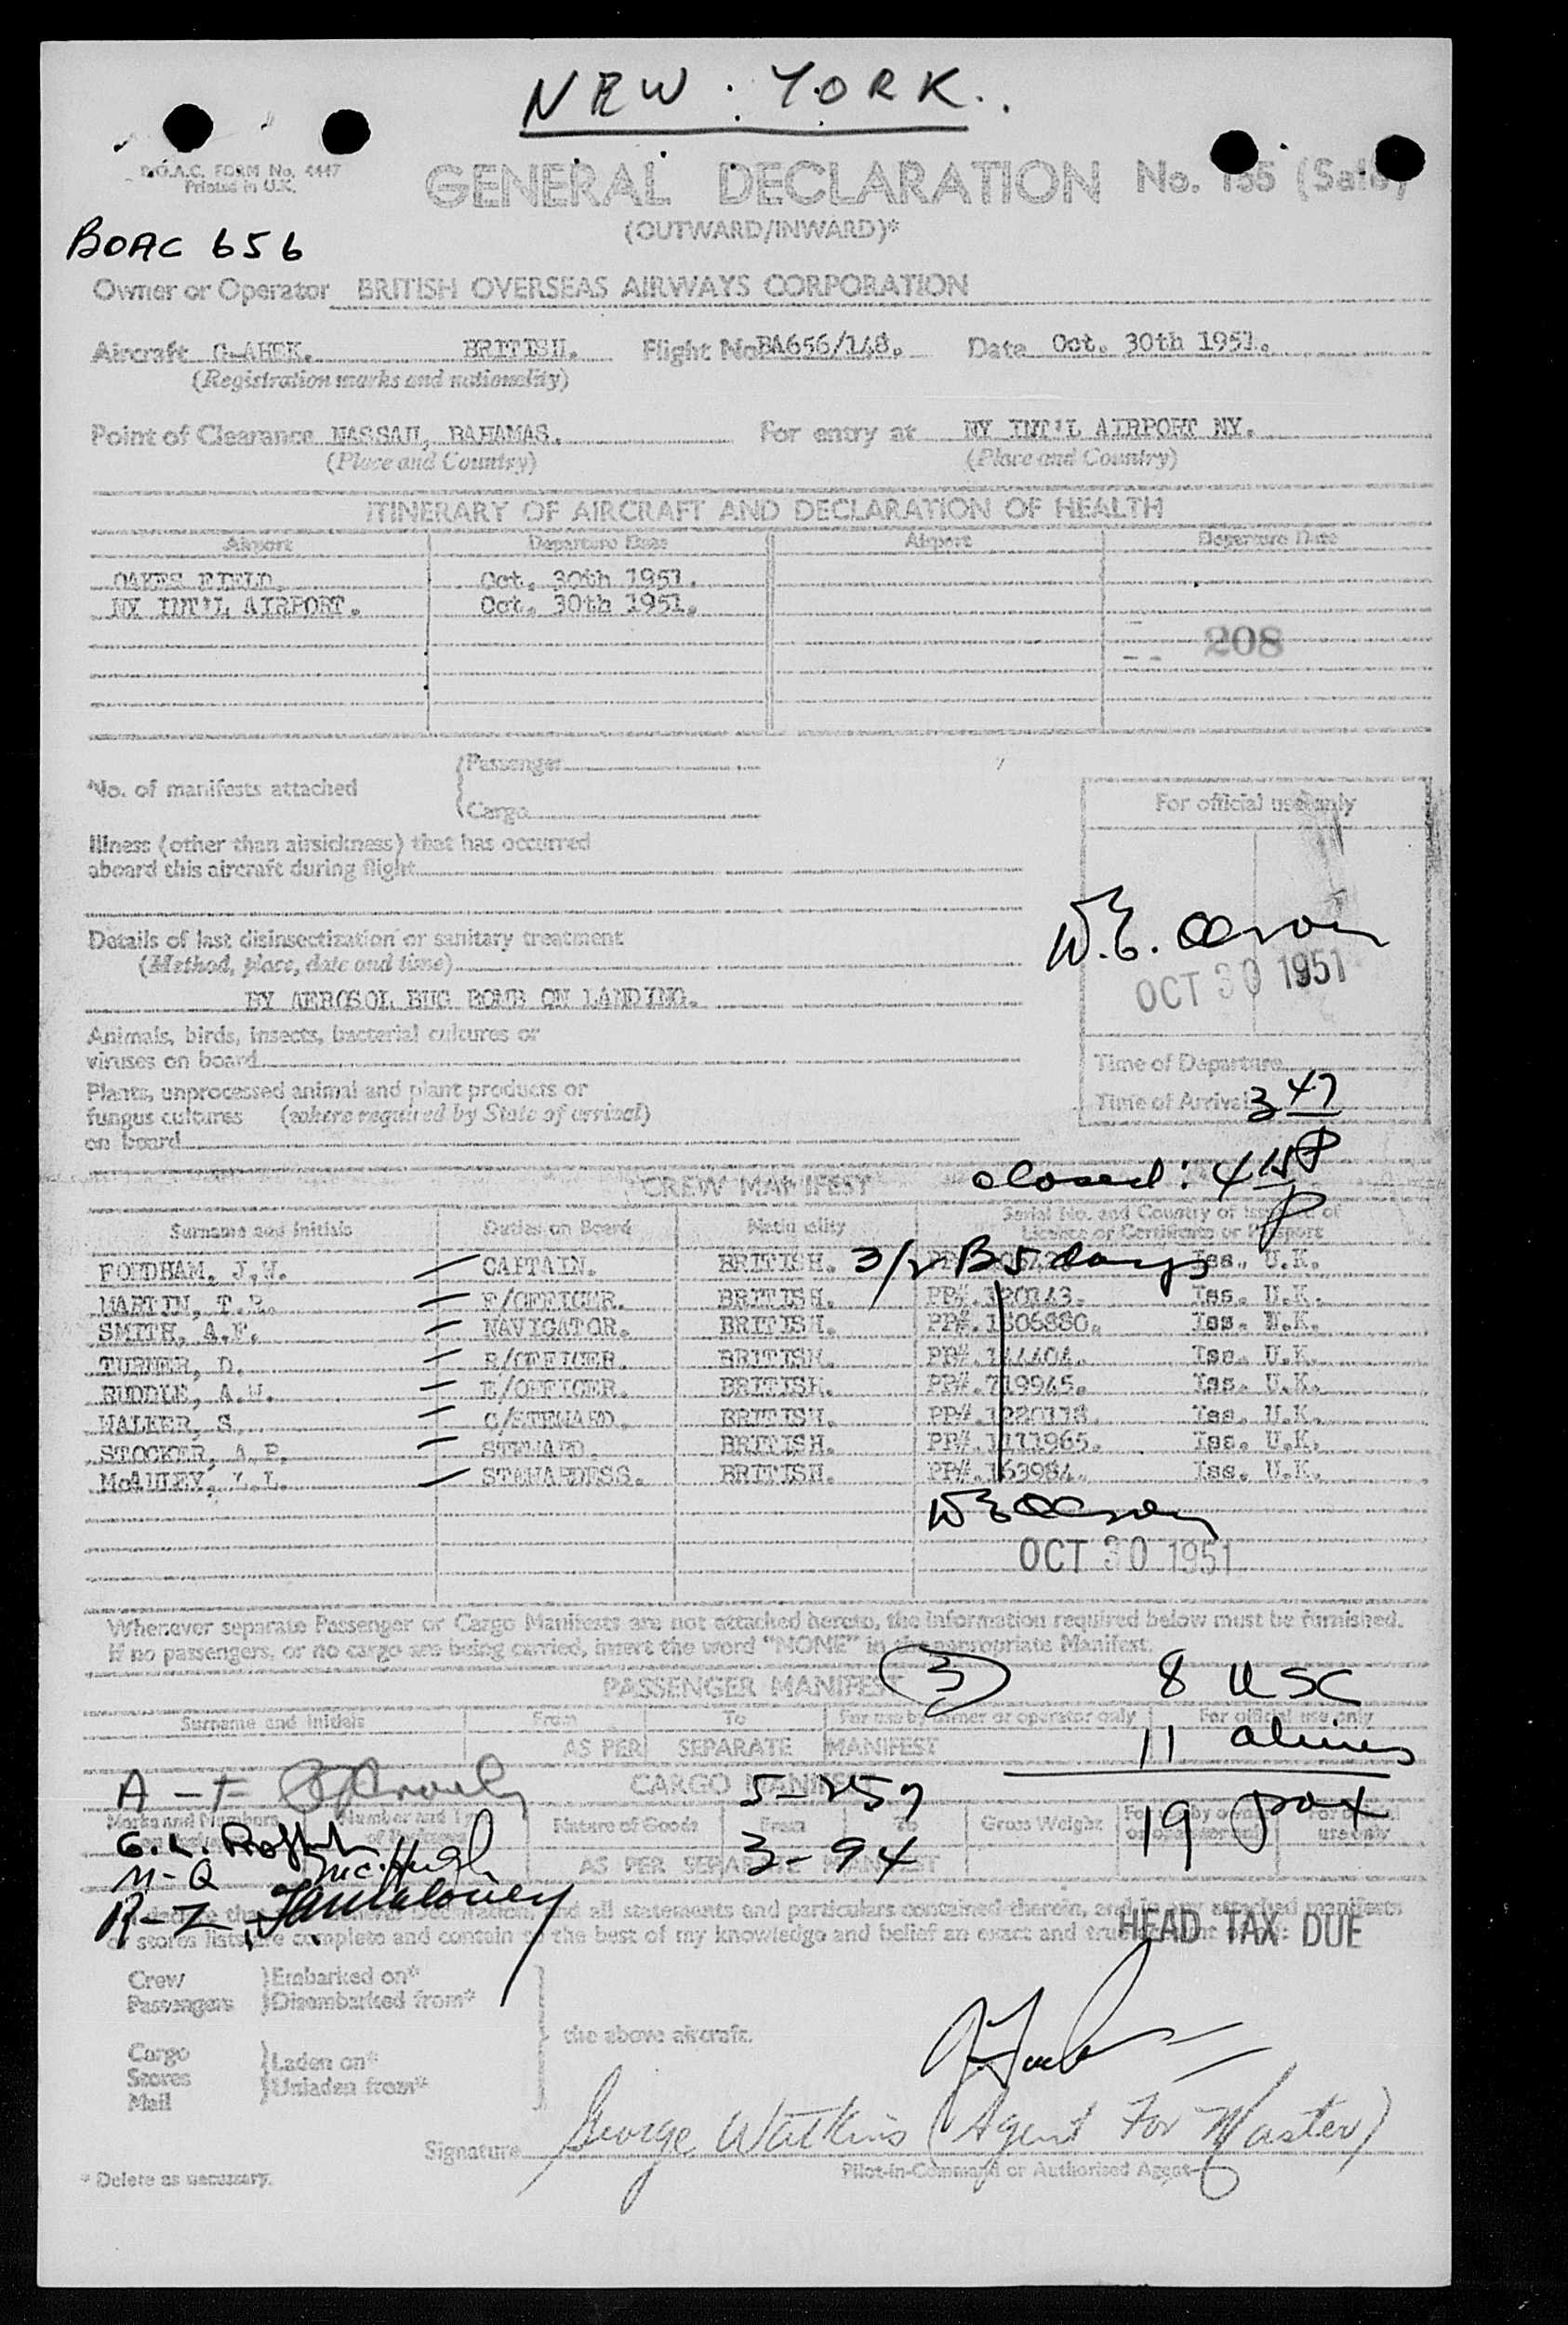 NEW YORK.
B.O.A.C. FORM No. 4447
Printed in U.K.
GENERAL DECLARATION No.
(OUTWARD/INWARD)*
BOAC 656
Owner or Operator BRITISH OVERSEAS AIRWAYS CORPORATION
Aircraft BRITISH. Flight No BA656/148. Date Oct. 30th 1951.
(Registration marks and nationality)
Point of Clearance NASSAU, BAHAMAS. For entry at NY INT'L AIRPORT NY.
(Place and Country) (Place and Country)
ITINERARY OF AIRCRAFT AND DECLARATION OF HEALTH
Airport Departure Date Airport Departure Date
OAKES FIELD. Oct. 30th 1951.
NY INT'L AIRPORT. Oct. 30th 1951.
208
*No. of manifests attached
Passenger
Cargo
For official use only
Illness (other than airsickness) that has occurred
aboard this aircraft during flight
Details of last disinsectization or sanitary treatment
(Method, place, date and time)
OCT 30 1951
BY AEROSOL BUG BOMB ON LANDING.
Animals, birds, insects, bacterial cultures or
viruses on board
Time of Departure
Plants, unprocessed animal and plant products or
fungus cultures (where required by State of arrival)
on board
Time of Arrival 3 47
closed: 4
CREW MANIFEST
Surname and Initials Duties on Board Nationality Serial No. and Country of Issue of
Licence or Certificate or Passport
FORDHAM, J.W. CAPTAIN. BRITISH. 3/2 B 5 days Iss. U.K.
MARTIN, T.R. F/OFFICER. BRITISH. PP#. Iss. U.K.
SMITH, A.F. NAVIGATOR. BRITISH. PP#. Iss. U.K.
TURNER, D. R/OFFICER. BRITISH. PP#. Iss. U.K.
RUDDLE, A.W. E/OFFICER. BRITISH. PP#.719945. Iss. U.K.
WALKER, S. C/STEWARD. BRITISH. PP#. Iss. U.K.
STOCKER, A.P. STEWARD. BRITISH. PP#.1111965. Iss. U.K.
McAULEY, STAWARDESS. BRITISH. PP#.163984. Iss. U.K.
OCT 30 1951
Whenever separate Passenger or Cargo Manifests are not attached hereto, the information required below must be furnished.
If no passengers, or no cargo are being carried, insert the word "NONE" in the appropriate Manifest.
PASSENGER MANIFEST 3 8 USC
Surname and Initials From To For use by owner or operator only For official use only
AS PER SEPARATE MANIFEST 11 aliens
A-F CARGO MANIFEST 5-257
Marks and Numbers Number and Nature of Goods From To Gross Weight
19 pax
G.L.
AS PER SEPARATE MANIFEST 3-94
M-Q McHugh
R-Z
all statements and particulars contained therein, and in any attached manifests
or stores lists are complete and contain to the best of my knowledge and belief an exact and true
HEAD TAX DUE
Crew Embarked on*
Passengers Disembarked from*
the above aircraft.
Cargo
Stores
Mail
Laden on*
Unladen from*
Signature George Watkins (Agent For Master)
Pilot-in-Command or Authorised Agent
* Delete as necessary.